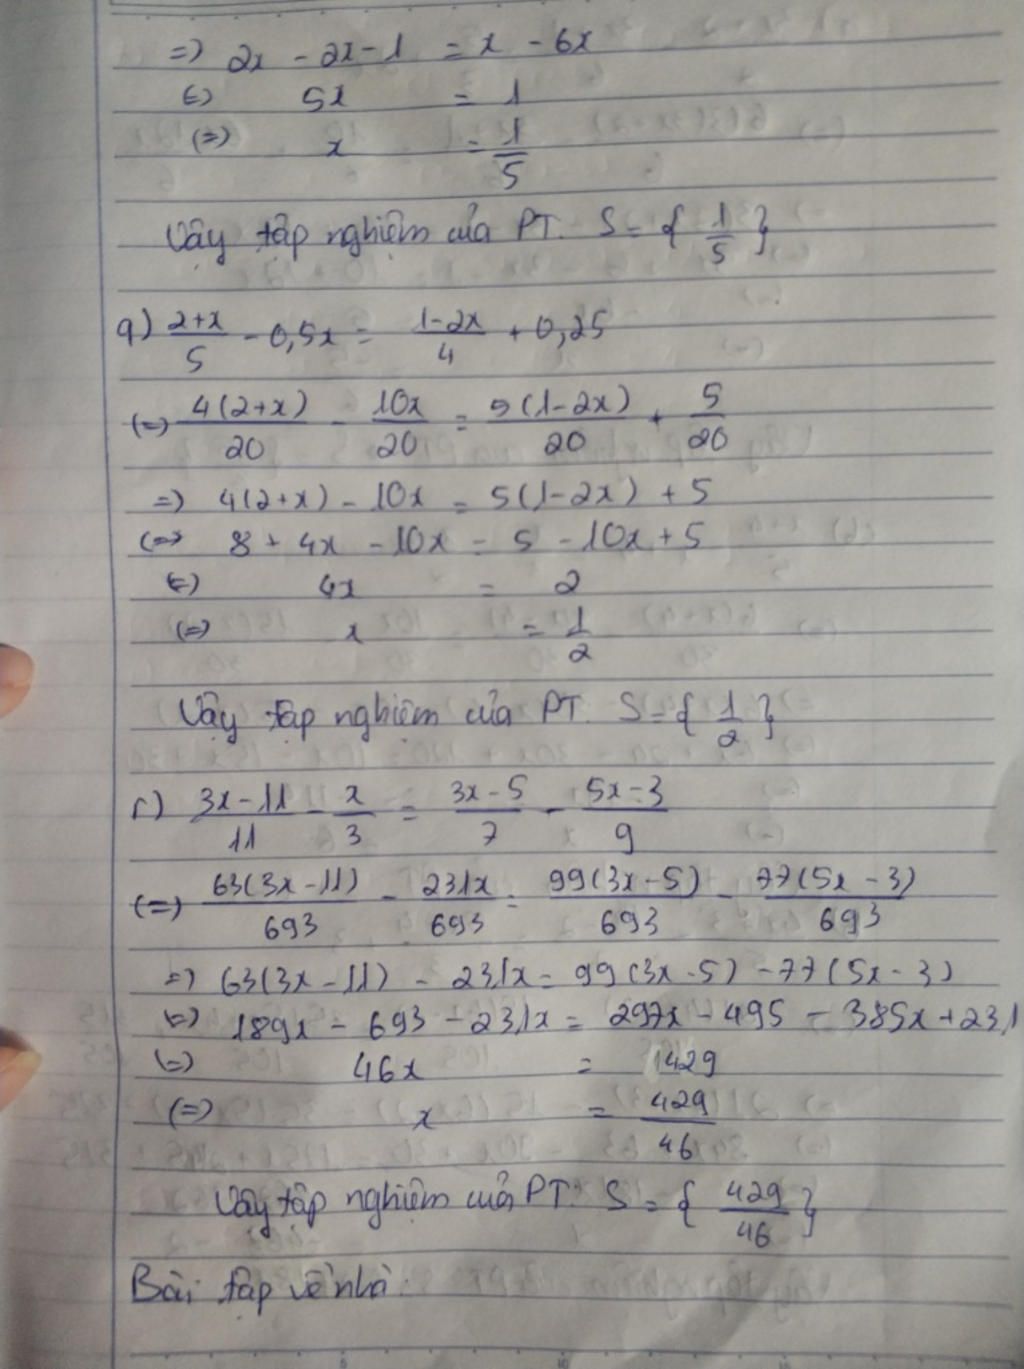 => 2x - 2x - 1 = x - 6x
(=) 5x = 1
(=) x = 1/5
Vậy tập nghiệm của PT. S = { 1/5 }
q) (2+x)/5 - 0,5x = (1-2x)/4 + 0,25
(=) 4(2+x)/20 - 10x/20 = 5(1-2x)/20 + 5/20
=) 4(2+x) - 10x = 5(1-2x) + 5
(=> 8 + 4x - 10x = 5 - 10x + 5
(=) 4x = 2
(=) x = 1/2
Vậy tập nghiệm của PT. S = { 1/2 }
r) (3x-11)/11 - x/3 = (3x-5)/7 - (5x-3)/9
(=) 63(3x-11)/693 - 231x/693 = 99(3x-5)/693 - 77(5x-3)/693
=) 63(3x-11) - 231x = 99(3x-5) - 77(5x-3)
(=) 189x - 693 - 231x = 297x - 495 - 385x + 231
(=) 46x = 429
(=) x = 429/46
Vậy tập nghiệm của PT: S = { 429/46 }
Bài tập về nhà: